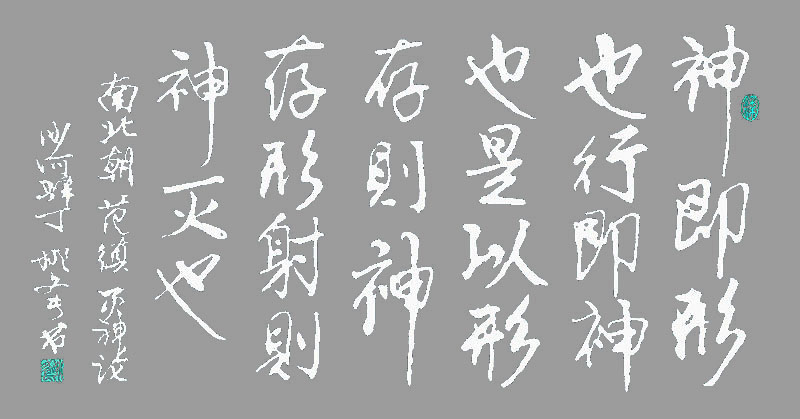 神即形
也行即神
也是以形
存則神
存形射則
神灭也
南北朝 范縝 灭神论
沙河